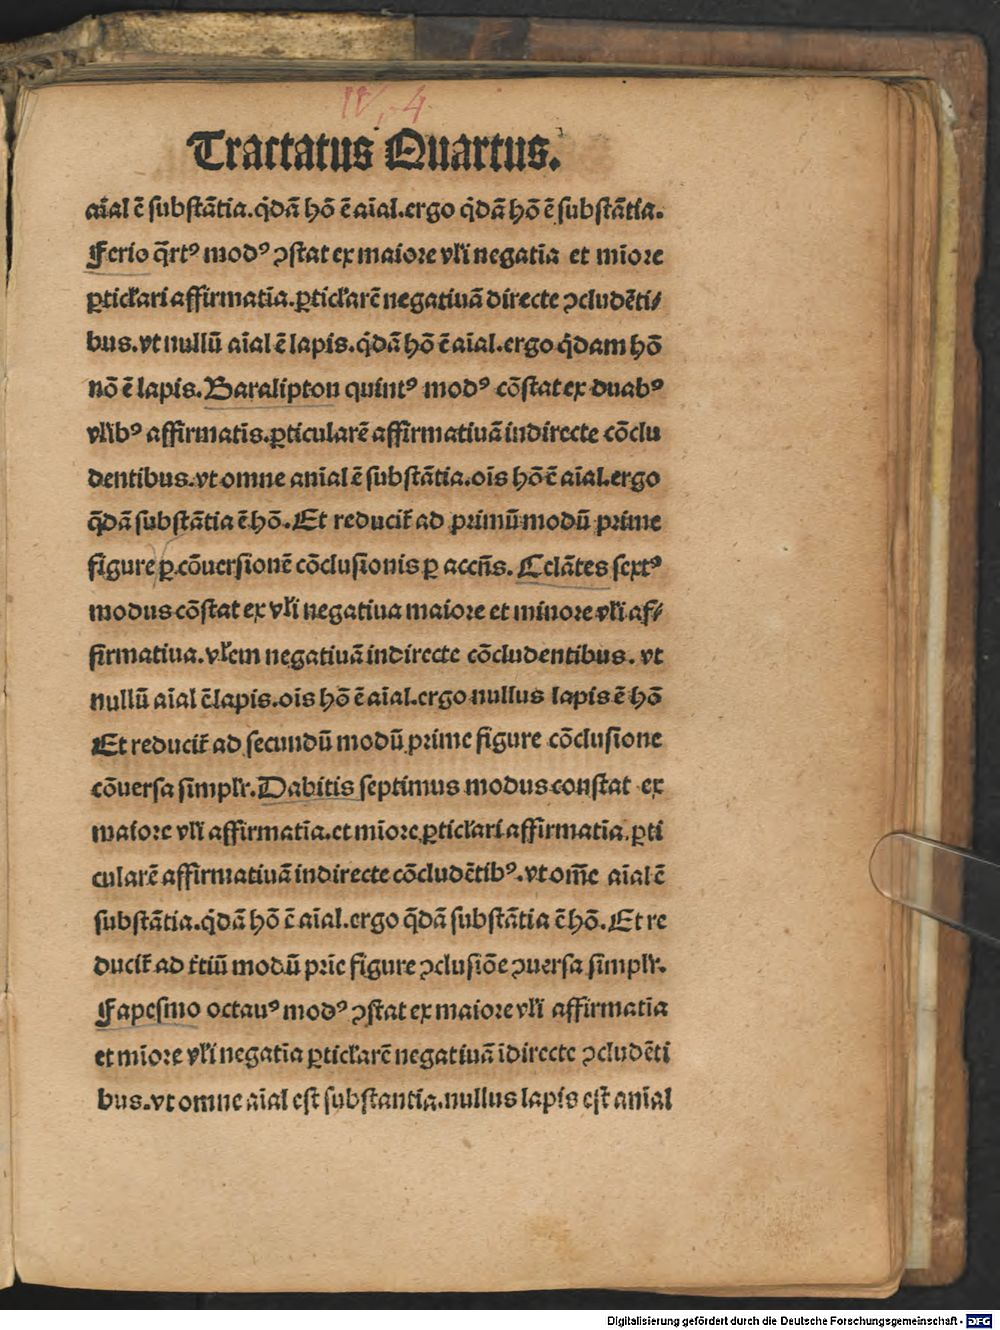 IV, 4
Tractatus Quartus.
aīal ē substātia.q̄dā hō ē aīal.ergo q̄dā hō ē substātia.
Ferio q̄rtꝰ modꝰ ꝯstat ex maiore vl̄i negatīa et mīore
ꝑticl̄ari affirmatīa.ꝑticl̄arē negatiuā directe ꝯcludēti/
bus.vt nullū aīal ē lapis.q̄dā hō ē aīal.ergo q̄dam hō
nō ē lapis.Baralipton quintꝰ modꝰ cōstat ex duabꝰ
vl̄ibꝰ affirmatīs.ꝑticularē affirmatiuā indirecte cōclu
dentibus.vt omne anīal ē substātia.oīs hō ē aīal.ergo
q̄dā substātia ē hō.Et reducit̄ ad primū modū prime
figure ꝑ cōuersionē cōclusionis ꝑ accn̄s. Celātes sextꝰ
modus cōstat ex vl̄i negatiua maiore et minore vl̄i af/
firmatiua.vl̄em negatiuā indirecte cōcludentibus. vt
nullū aīal ē lapis.oīs hō ē aīal.ergo nullus lapis ē hō
Et reducit̄ ad secundū modū prime figure cōclusione
cōuersa simpl̄r.Dabitis septimus modus constat ex
maiore vl̄i affirmatīa.et mīore ꝑticl̄ari affirmatīa.ꝑti
cularē affirmatiuā indirecte cōcludētibꝰ.vt om̄e aīal ē
substātia.q̄dā hō ē aīal.ergo q̄dā substātia ē hō.Et re
ducit̄ ad t̄tiū modū prīe figure ꝯclusiōe ꝯuersa simpl̄r.
Fapesmo octauꝰ modꝰ ꝯstat ex maiore vl̄i affirmatīa
et mīore vl̄i negatīa ꝑticl̄arē negatiuā īdirecte ꝯcludēti
bus.vt omne aīal est substantia.nullus lapis est anīal
Digitalisierung gefördert durch die Deutsche Forschungsgemeinschaft - DFG